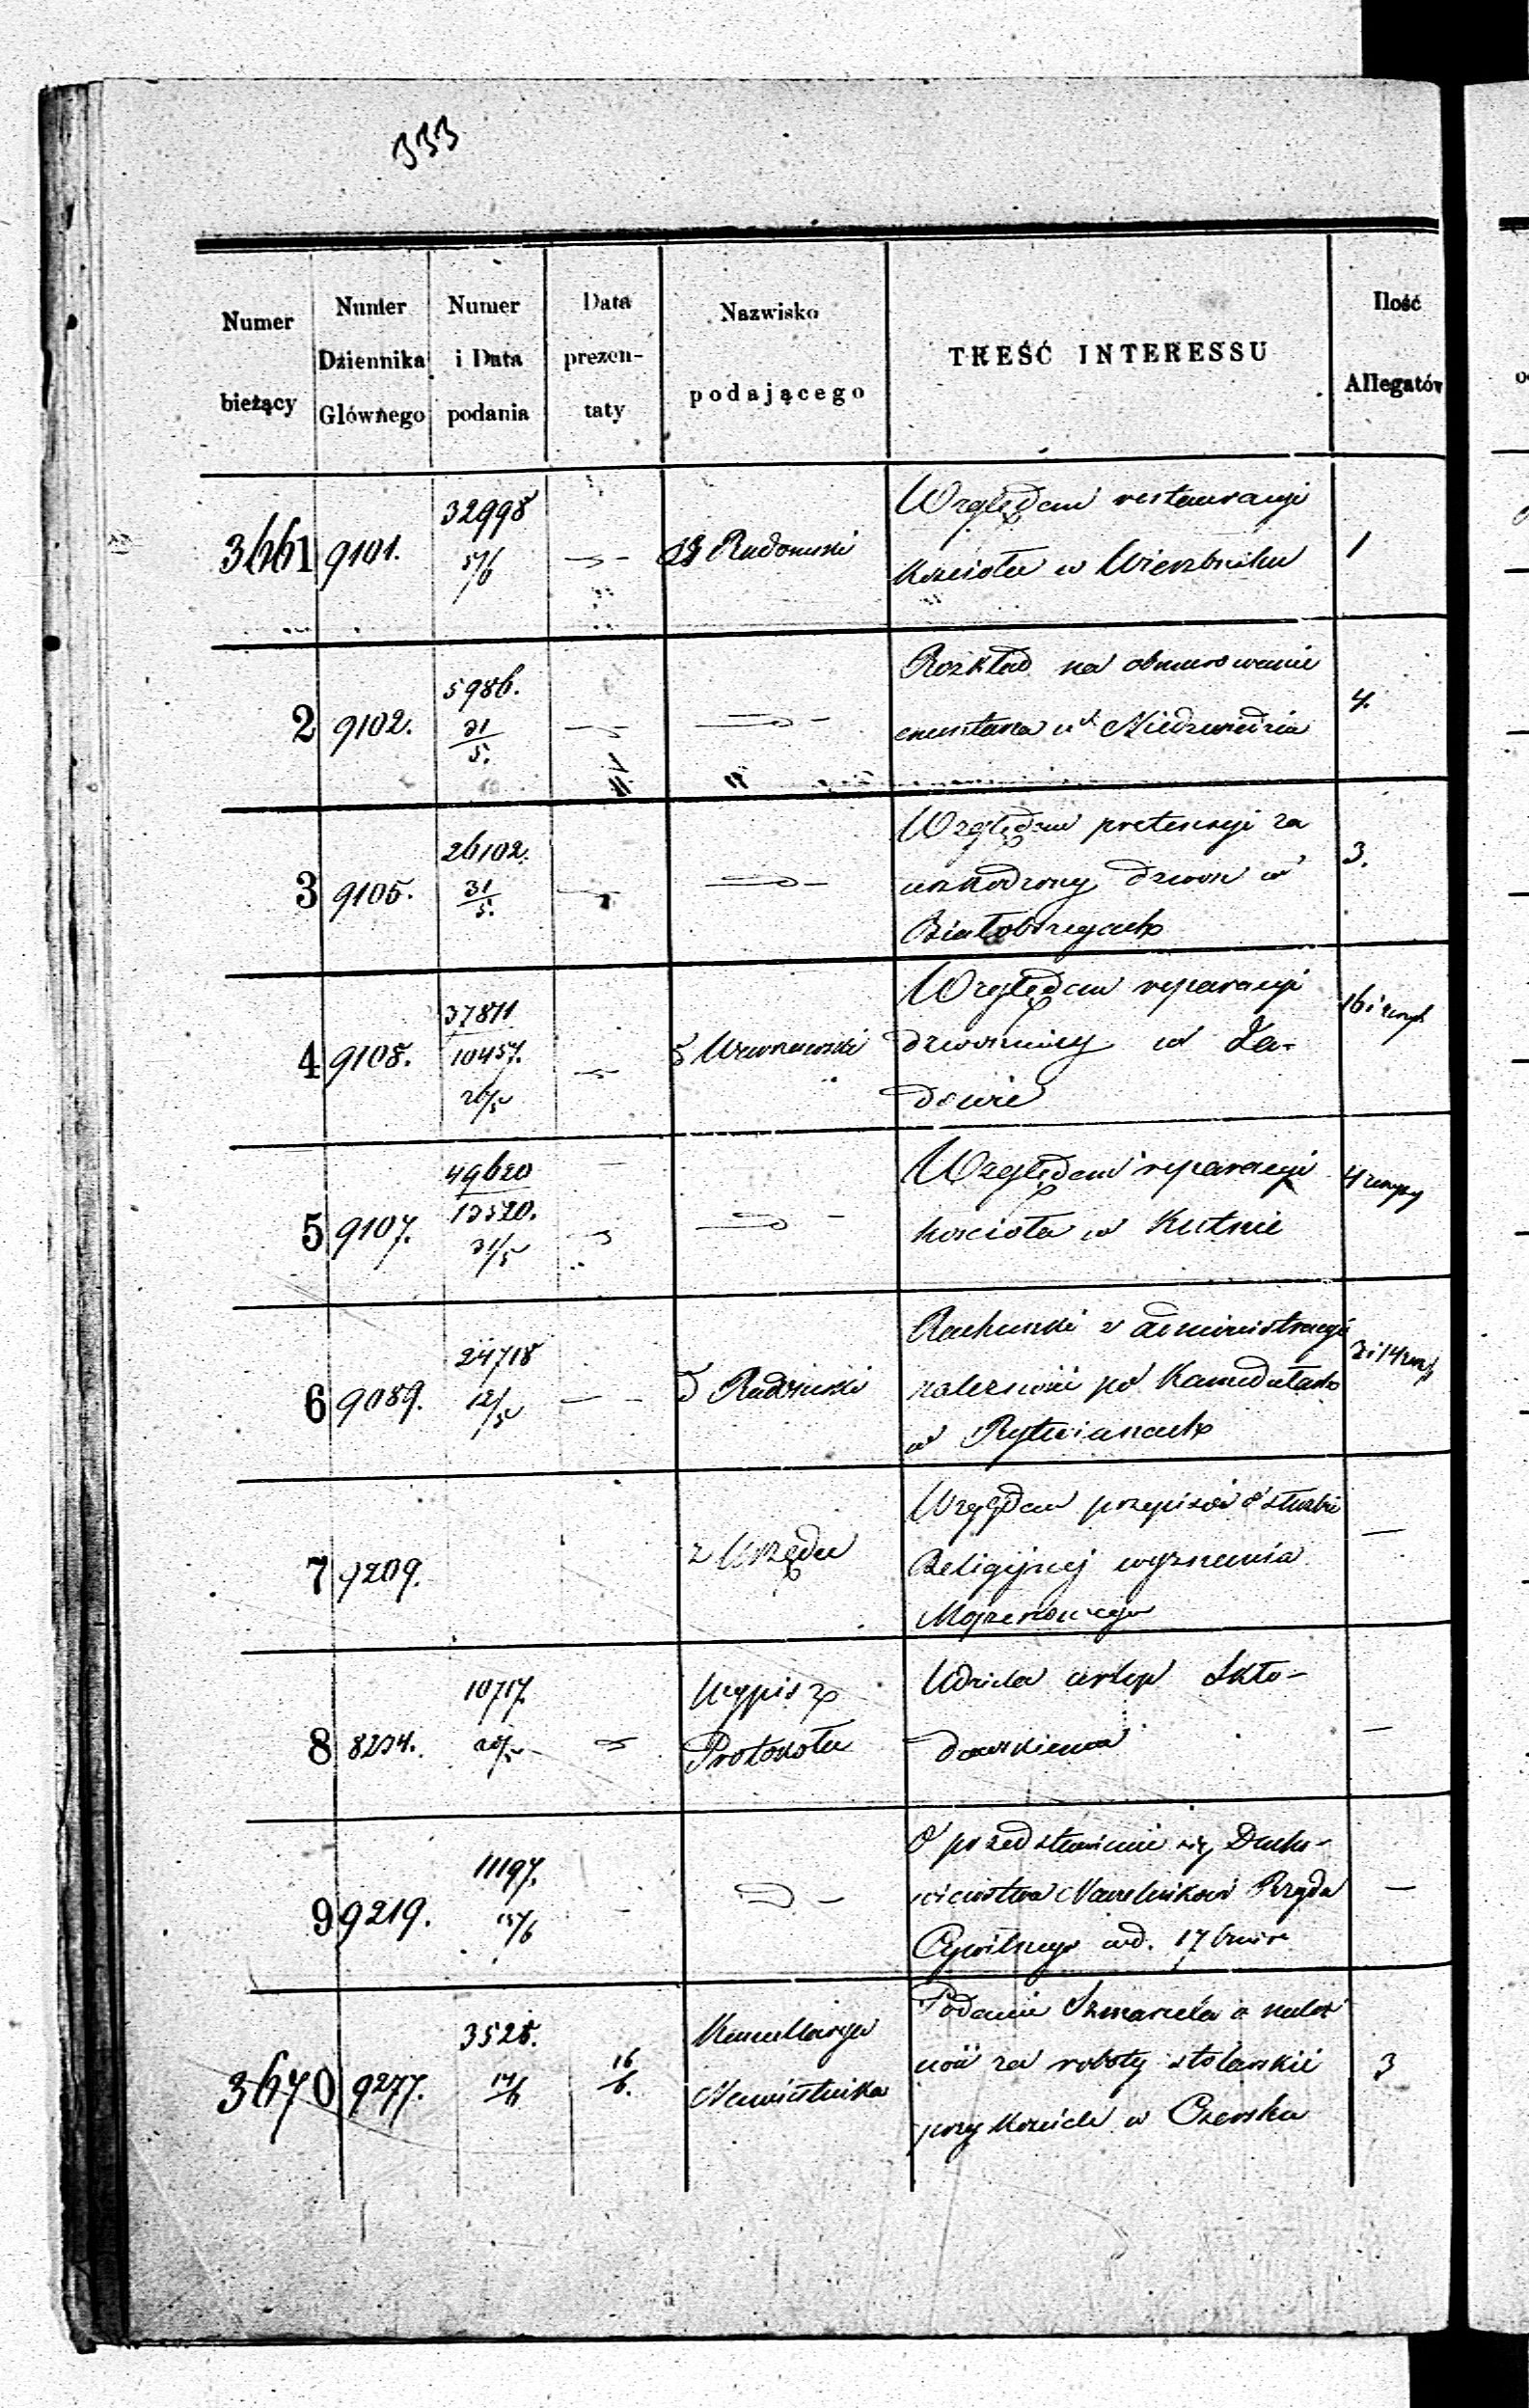 333
Numer bieżący | Numer Dziennika Głównego | Numer i Data podania | Data prezen-taty | Nazwisko podającego | TREŚĆ INTERESSU | Ilość Allegatów
3661 9101. 32998 5/6 Radomski
Względem restauracyi
kościoła w Wierzbniku
1
2 9102. 5986. 31/5.
Rozkład na obmurowanie
cmentarza Niedzwiedzia
4.
3 9105. 26102. 31/5.
Względem pretensyi za
uszkodzony dzwon w
Białobrzegach
3.
4 9108. 37811 10457. 26/5
Względem reparacyi
dzwonnicy w
16 i
5 9107. 49620 13520. 31/5
Względem reparacyi
kościoła w Kutnie
4
6 9089. 24718 12/5
Rachunki z administracyi
po Kamedułach
w Rytwianach
7 9209. z Urzędu
Względem przepisów o służbie
Religijnej wyznania
Mojżeszowego
—
8 8234. 10717. Wypis z
Protokołu
Udziela urlop Skło-
dowskiemu
—
9 9219. 11197. 15/6
O przedstawienie się Ducho-
wieństwa Naczelnikowi Rządu
Cywilnego d. 17
—
3670 9277. 3528. 14/6 16/6. Kancellarya
Namiestnika
Podanie o należ
ność za roboty stolarskie
przy kościele w Czersku
3